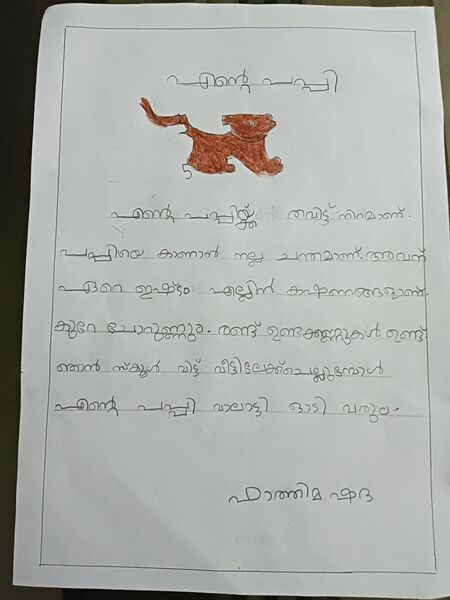 എന്റെ പപ്പി
5
എന്റെ പപ്പിയ്ക്ക് തവിട്ട് നിറമാണ്.
പപ്പിയെ കാണാൻ നല്ല ചന്തമാണ്. അവന്
ഏറെ ഇഷ്ടം എല്ലിൻ കഷണങ്ങളാണ്.
കുറേ ചോറുണ്ണും. രണ്ട് ഉണ്ടക്കണ്ണുകൾ ഉണ്ട്.
ഞാൻ സ്കൂൾ വിട്ട് വീട്ടിലേക്ക്ചെല്ലുമ്പോൾ
എന്റെ പപ്പി വാലാട്ടി ഓടി വരും.
ഫാത്തിമ ഷദ